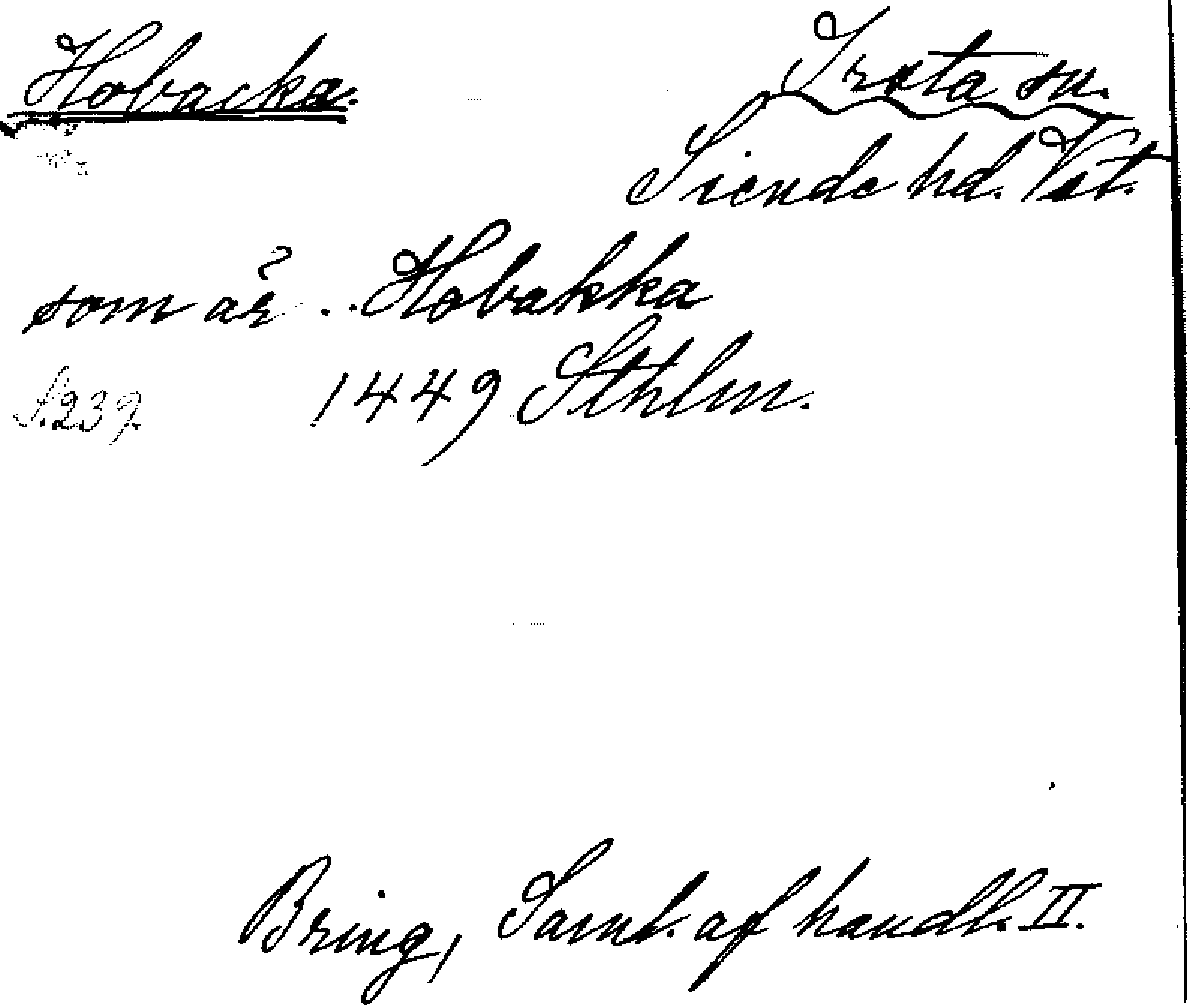 Hobacka.
Irsta sn.
Siende hd. Vst.
som är .. Hobakka
S. 239. 1449 Sthlm.
Bring, Saml. af handl. II.